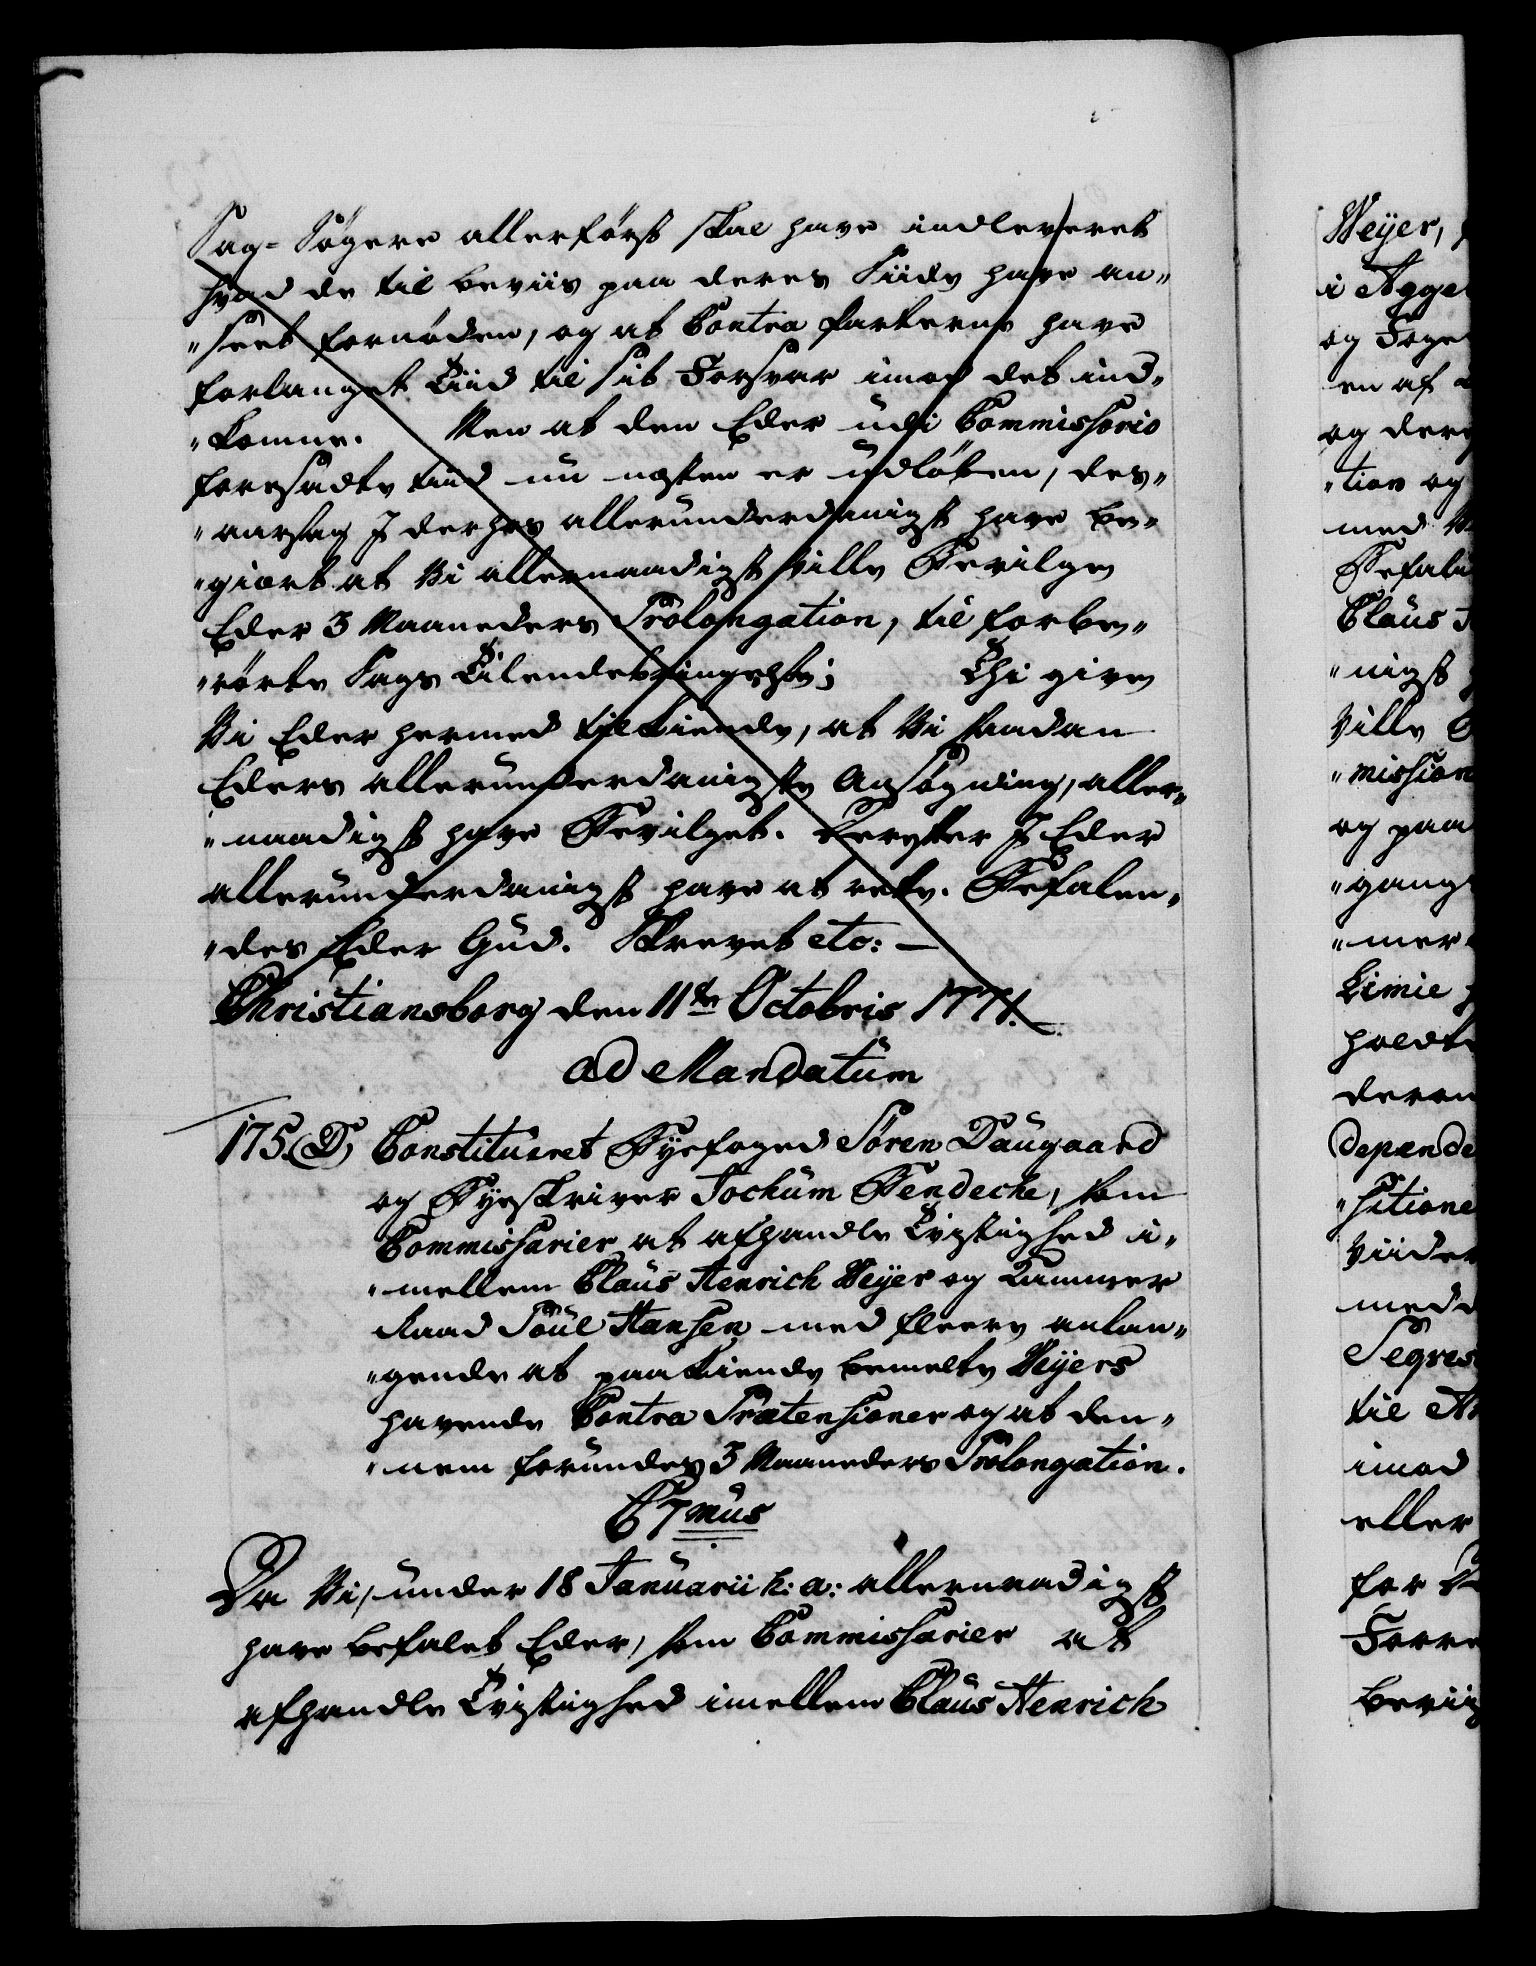 Sag-Søgere allerførst skal have indleveret
hvad de til beviis paa deres Siide have an„
„seet fornøden, og at Contra Parterne have
forlanget Tiid til sit Forsvar imod det ind„
„komne. Men at den Eder udi Commissorio
foresadte tiid nu næsten er udløben, des„
„aarsag I derhos allerunderdanigst have be„
„giært at Vi allernaadigst ville Bevilge
Eder 3 Maaneders Prolongation, til forbe„
„rørte Sags Tilendebringelse; Thi give
Vi Eder hermed tilkiende, at Vi saadan
Eders allerunderdanigste Ansøgning, aller„
„naadigst have Bevilget. Herefter I Eder
allerunderdanigst have at rette. Befalen„
„des Eder Gud. Skrevet etc: —
Christiansborg den 11te Octobris 1771.
ad Mandatum
175. D) Constitueret Byefoged Søren Daugaard
og Byeskriver Jochum Bendeche, som
Commissarier at afhandle Tvistighed i„
„mellem Claus Henrich Weyer og Kammer
Raad Poul Hansen med fleere anlan„
„gende at paakiende bemelte Weyers
havende Contra Prætensioner og at den„
„nem forundes 3 Maaneders Prolongation.
C7mus
Da Vi, under 18 Januarii h: a: allernaadigst
have befalet Eder, som Commissarier at
afhandle Tvistighed imellem Claus Henrich
Weyer,
og
en af
og dere
„tion og
med
Befale
Claus
„nigst
Ville
„mission
og paa
„gang
„mer
holdt
depende
„sitione
til
imod
eller
for
beviis